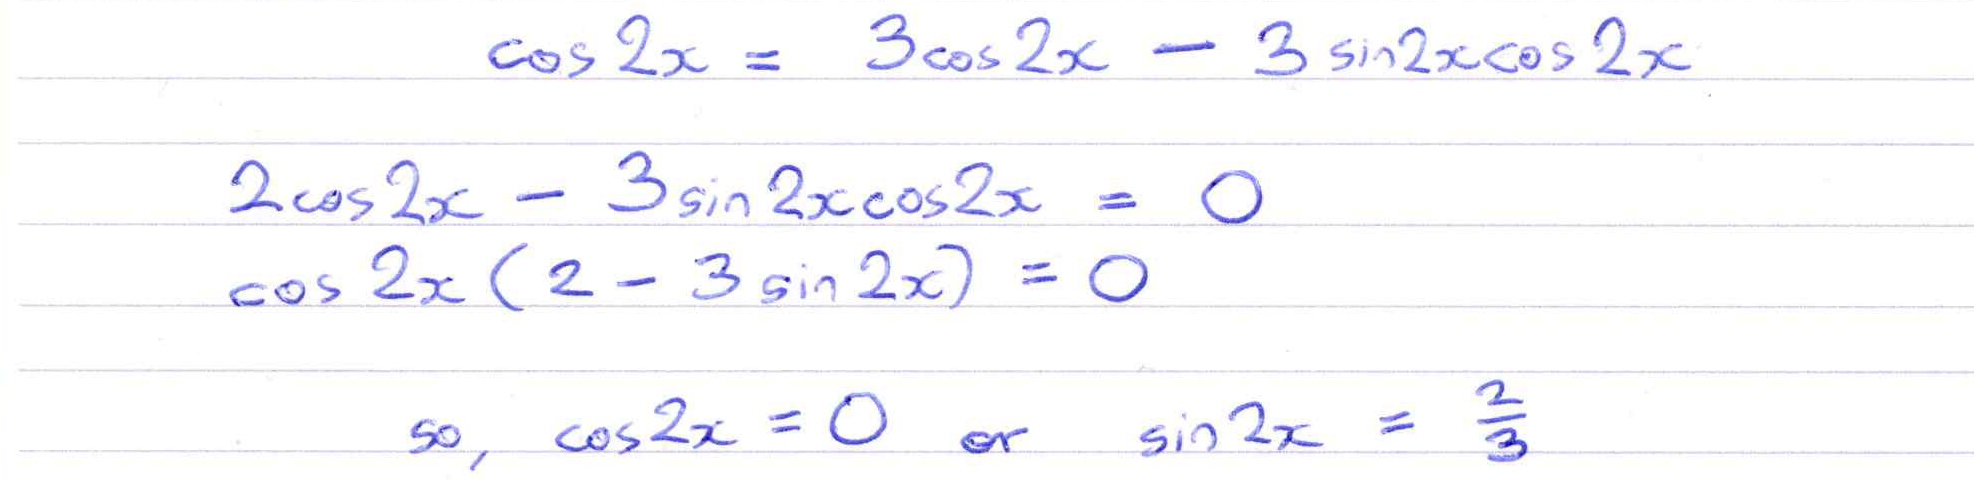 cos 2x = 3cos 2x - 3 sin2x cos 2x
2cos2x - 3 sin 2x cos2x = 0
cos 2x (2 - 3 sin 2x) = 0
so, cos2x = 0 or sin 2x = 2/3